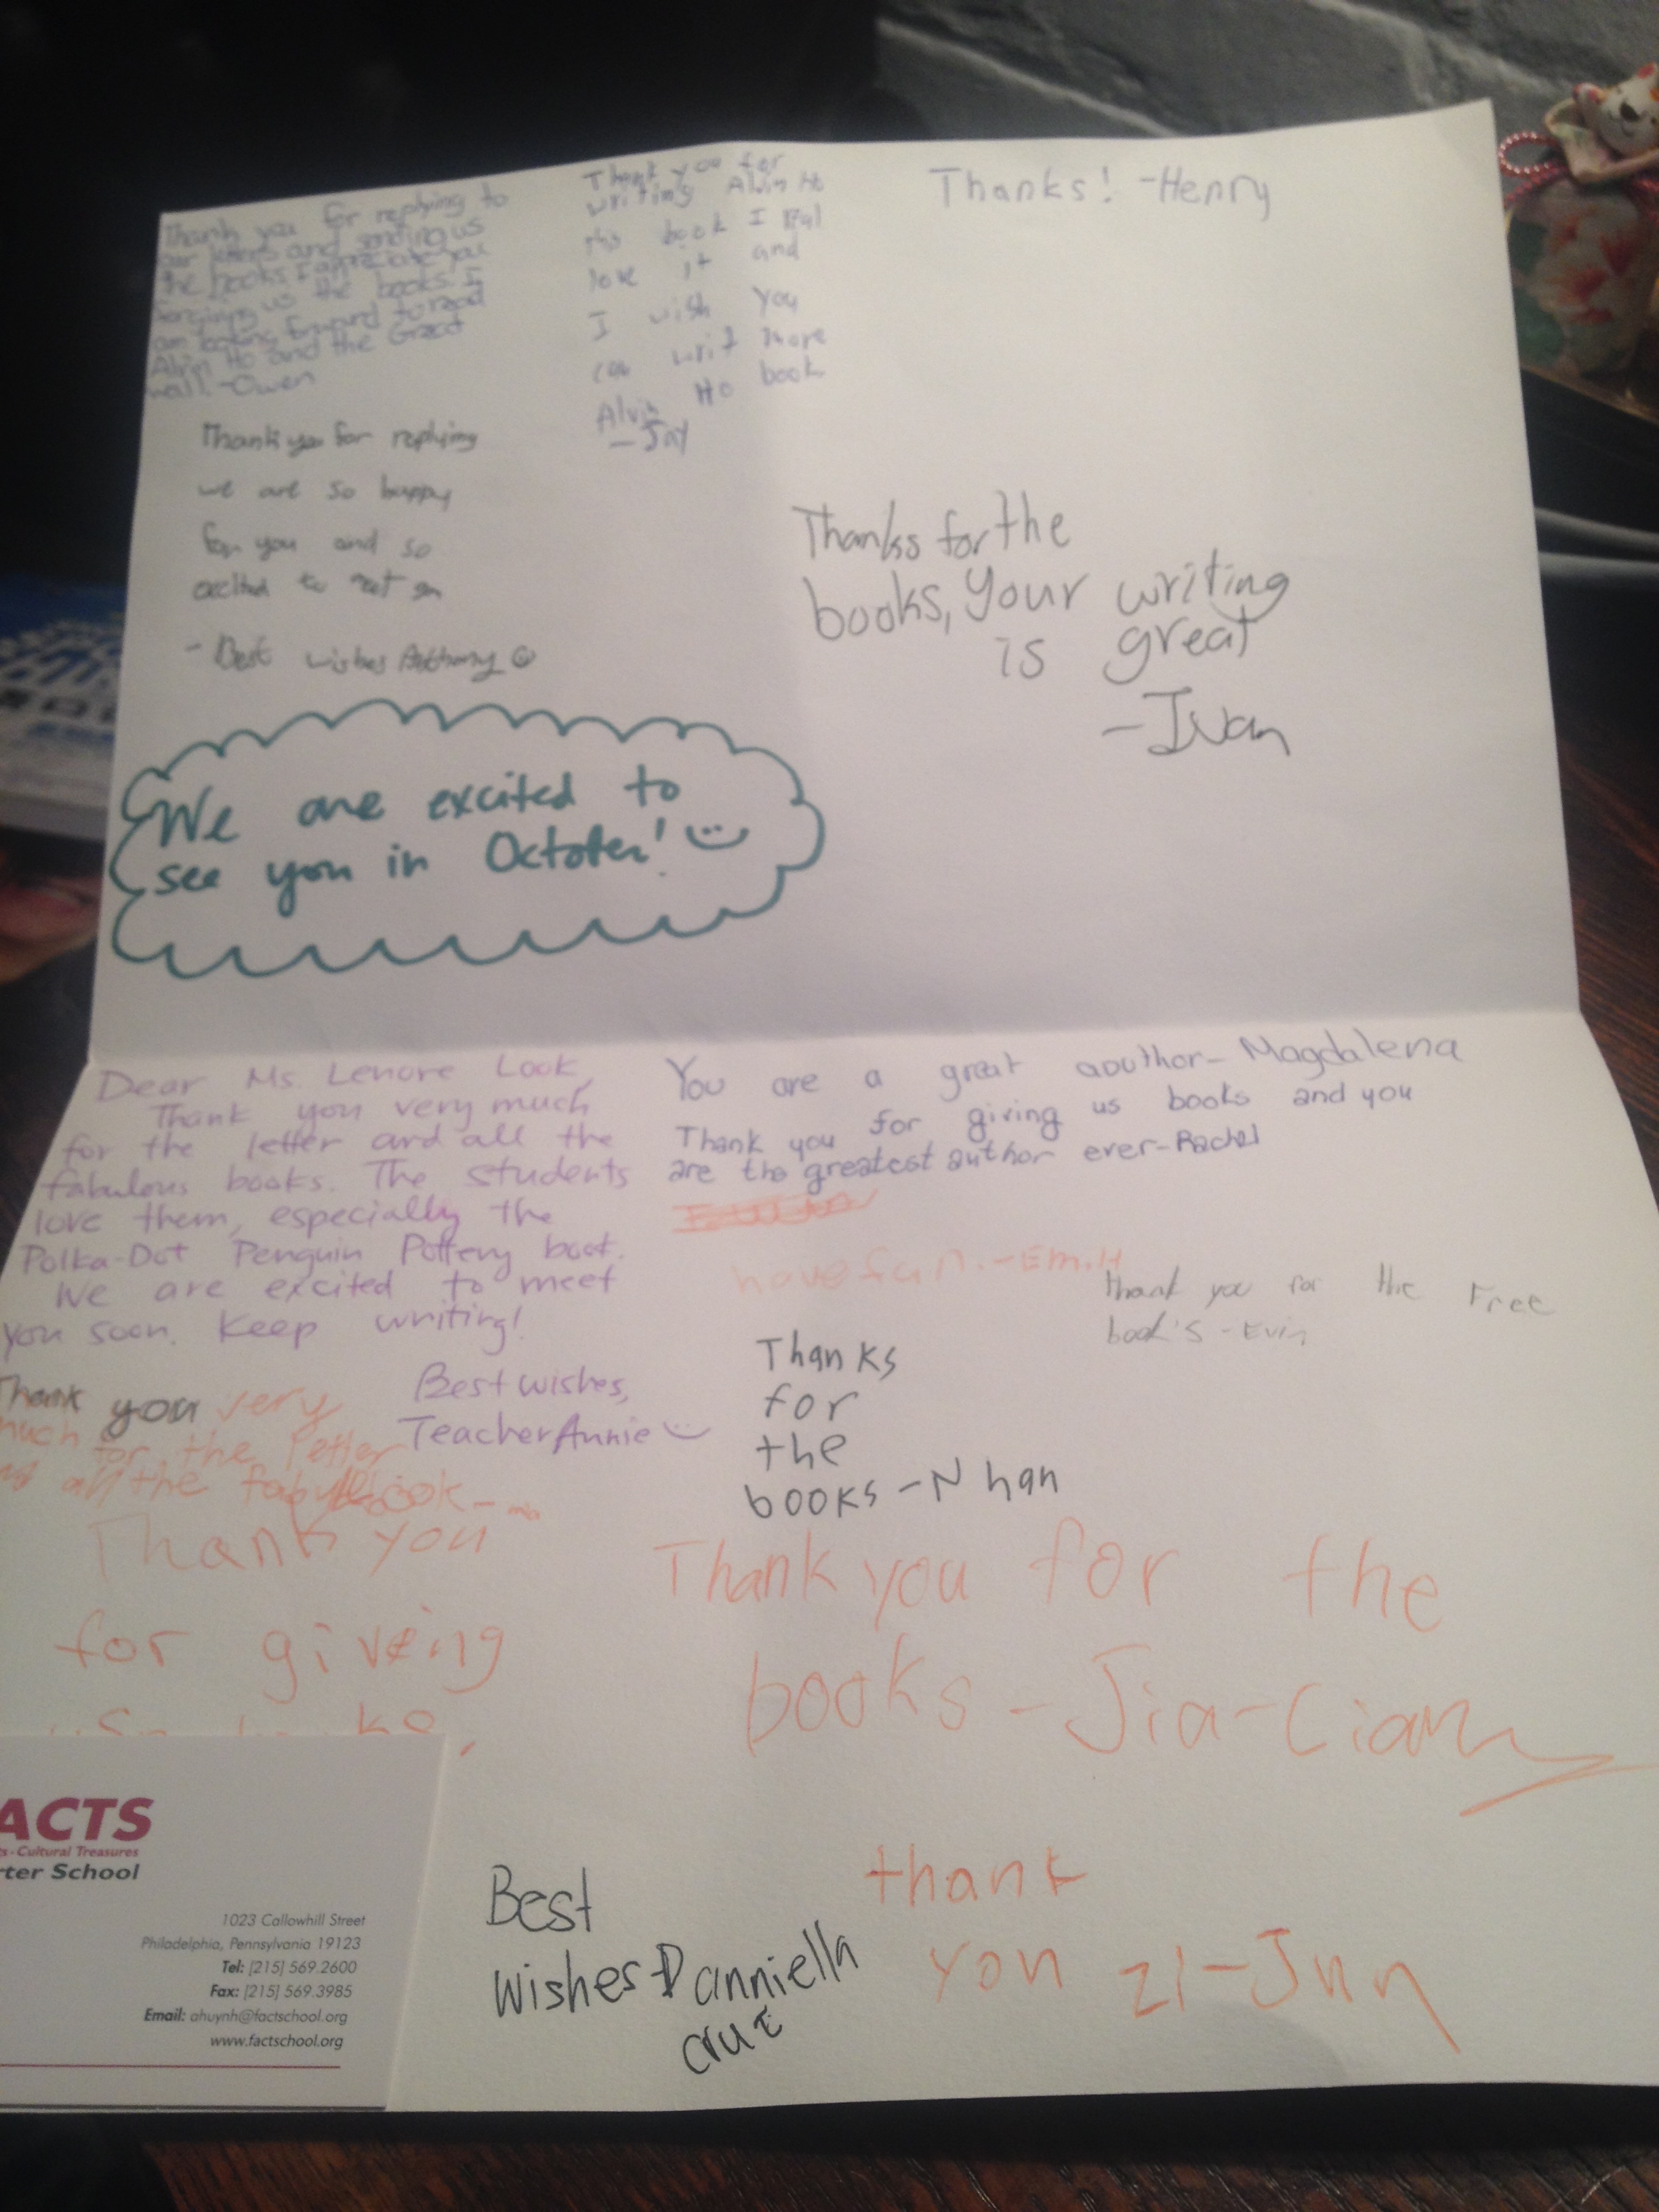 Thank you for replying to
our letters and sending us
the books I appreciate you
sending us the books. I
am looking forward to read
Alvin Ho and the Great
wall. -Owen
Thank you for
writing Alvin Ho
this book I
love it and
I wish you
can writ more
Alvin Ho book
- Jay
Thanks! -Henry
Thank you for replying
we are so happy
for you and so
excited to
- Best wishes Anthony
Thanks for the
books, your writing
is great
-Ivan
We are excited to
see you in October!
Dear Ms. Lenore Look,
Thank you very much
for the letter and all the
fabulous books. The students
love them, especially the
Polka-Dot Penguin Pottery book.
We are excited to meet
you soon. Keep writing!
Best wishes,
Teacher Annie
You are a great aouthor- Magdalena
Thank you for giving us books and you
are the greatest author ever-Rachel
have fun.-Em.H
Thank you for the Free
book's - Evin
Thank you very
much for the letter
all the
Thanks
for
the
books -Nhan
Thank you
for giveing
Thank you for the
books -Jia-Cian
ACTS
s · Cultural Treasures
rter School
1023 Callowhill Street
Philadelphia, Pennsylvania 19123
Tel: [215] 569.2600
Fax: [215] 569.3985
Email: ahuynh@factschool.org
www.factschool.org
Best
wishes-Danniella
cruz
thank
you zi-Jun